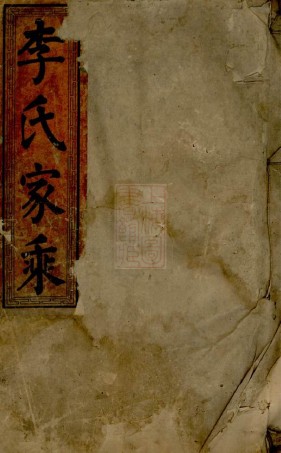 李氏家乘